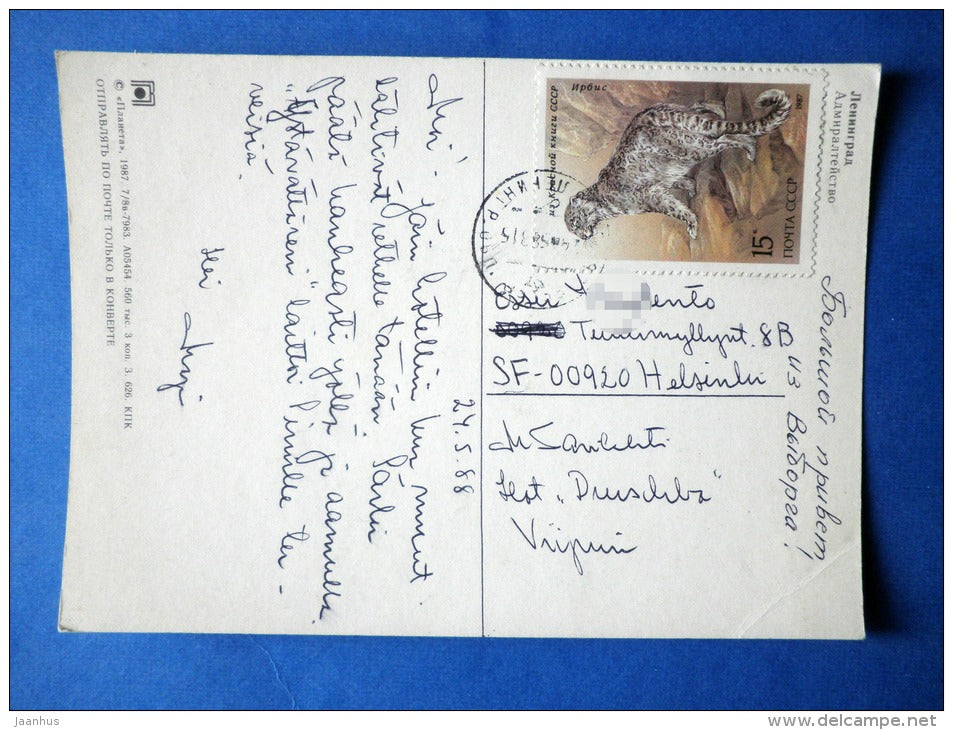 Moi! Jäin hotelliin kun muut
lähtivät retkelle tänään. Särki
päätä kauheasti yöllä ja aamulla.
„Ystävättäreni" laittoi Pirulle ter-
veisiä.
Hei
24.5.88
SF-00920 Helsinki
Tuurnmyllynt. 8B
M
Hot „Druschba"
Viipuri
Большой привет
из Выборга!
Ленинград
Адмиралтейство
Ирбис
из Красной книги СССР
1987
15к
ПОЧТА СССР
© «Планета», 1987. 7/8в-7983. А05454. 560 тыс. 3 коп. З. 626. КПК
ОТПРАВЛЯТЬ ПО ПОЧТЕ ТОЛЬКО В КОНВЕРТЕ
Jaanhus
www.delcampe.net